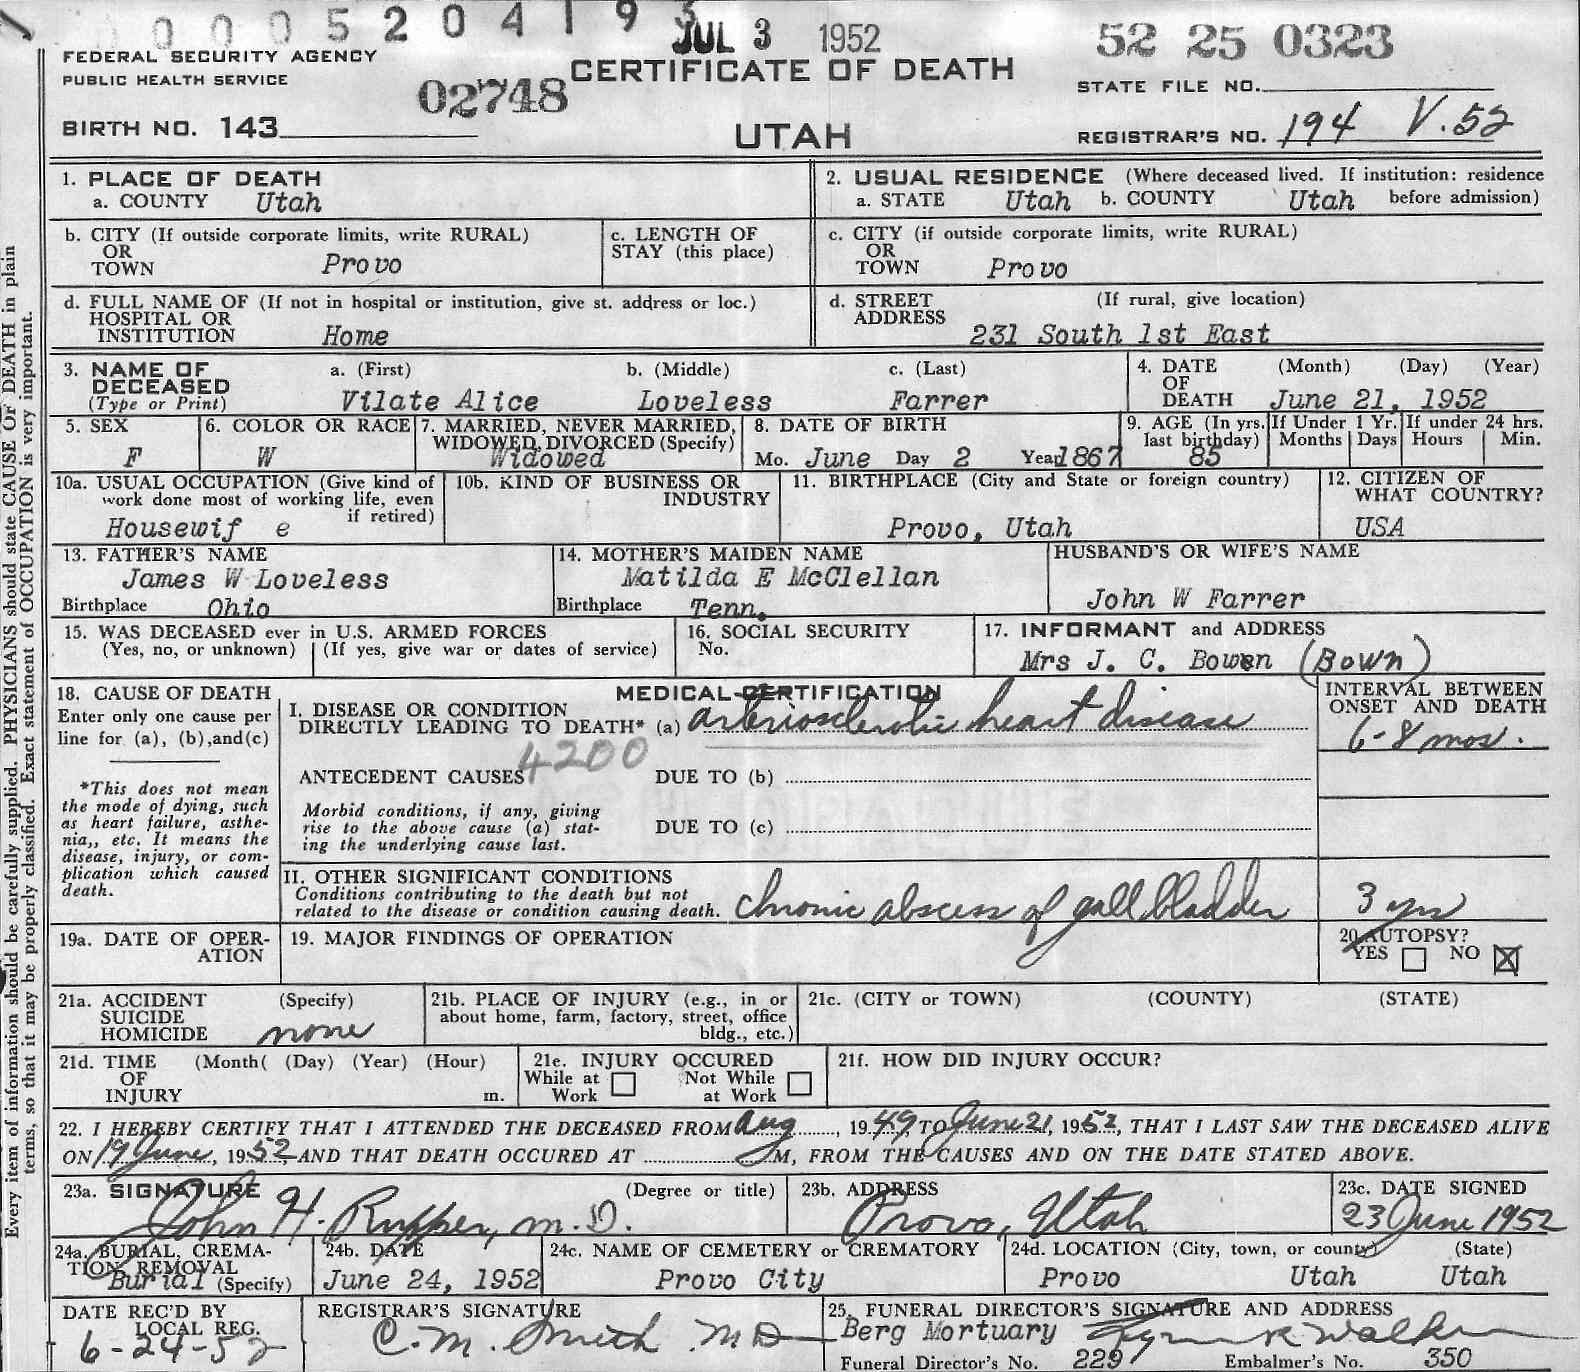 0 0 0 5 2 0 4 1 9 3 JUL 3 1952 52 25 0323
FEDERAL SECURITY AGENCY
PUBLIC HEALTH SERVICE
02748
CERTIFICATE OF DEATH
STATE FILE NO.
BIRTH NO. 143
UTAH
REGISTRAR'S NO. 194 V.52
1. PLACE OF DEATH
a. COUNTY Utah
2. USUAL RESIDENCE (Where deceased lived. If institution: residence
a. STATE Utah b. COUNTY Utah before admission)
b. CITY (If outside corporate limits, write RURAL)
OR
TOWN Provo
c. LENGTH OF
STAY (this place)
c. CITY (if outside corporate limits, write RURAL)
OR
TOWN Provo
d. FULL NAME OF (If not in hospital or institution, give st. address or loc.)
HOSPITAL OR
INSTITUTION Home
d. STREET (If rural, give location)
ADDRESS
231 South 1st East
3. NAME OF a. (First) b. (Middle) c. (Last)
DECEASED
(Type or Print) Vilate Alice Loveless Farrer
4. DATE (Month) (Day) (Year)
OF
DEATH June 21, 1952
5. SEX
F
6. COLOR OR RACE
W
7. MARRIED, NEVER MARRIED,
WIDOWED, DIVORCED (Specify)
Widowed
8. DATE OF BIRTH
Mo. June Day 2 Year 1867
9. AGE (In yrs.
last birthday)
85
If Under 1 Yr.
Months Days
If under 24 hrs.
Hours Min.
10a. USUAL OCCUPATION (Give kind of
work done most of working life, even
if retired)
Housewif e
10b. KIND OF BUSINESS OR
INDUSTRY
11. BIRTHPLACE (City and State or foreign country)
Provo, Utah
12. CITIZEN OF
WHAT COUNTRY?
USA
13. FATHER'S NAME
James W Loveless
Birthplace Ohio
14. MOTHER'S MAIDEN NAME
Matilda E McClellan
Birthplace Tenn.
HUSBAND'S OR WIFE'S NAME
John W Farrer
15. WAS DECEASED ever in U.S. ARMED FORCES
(Yes, no, or unknown) (If yes, give war or dates of service)
16. SOCIAL SECURITY
No.
17. INFORMANT and ADDRESS
Mrs J. C. Bowen (Bown)
18. CAUSE OF DEATH
Enter only one cause per
line for (a), (b),and(c)
*This does not mean
the mode of dying, such
as heart failure, asthe-
nia,, etc. It means the
disease, injury, or com-
plication which caused
death.
MEDICAL CERTIFICATION
I. DISEASE OR CONDITION
DIRECTLY LEADING TO DEATH* (a) arteriosclerotic heart disease
4200
ANTECEDENT CAUSES DUE TO (b)
Morbid conditions, if any, giving
rise to the above cause (a) stat-
ing the underlying cause last.
DUE TO (c)
II. OTHER SIGNIFICANT CONDITIONS
Conditions contributing to the death but not
related to the disease or condition causing death. chronic abscess of gall bladder
INTERVAL BETWEEN
ONSET AND DEATH
6-8 mos.
3 yrs
19a. DATE OF OPER-
ATION
19. MAJOR FINDINGS OF OPERATION
20. AUTOPSY?
YES NO
21a. ACCIDENT (Specify)
SUICIDE
HOMICIDE none
21b. PLACE OF INJURY (e.g., in or
about home, farm, factory, street, office
bldg., etc.)
21c. (CITY or TOWN) (COUNTY) (STATE)
21d. TIME (Month( (Day) (Year) (Hour)
OF
INJURY m.
21e. INJURY OCCURED
While at Not While
Work at Work
21f. HOW DID INJURY OCCUR?
22. I HEREBY CERTIFY THAT I ATTENDED THE DECEASED FROM Aug, 1949, TO June 21, 1952, THAT I LAST SAW THE DECEASED ALIVE
ON 19 June, 1952, AND THAT DEATH OCCURED AT M, FROM THE CAUSES AND ON THE DATE STATED ABOVE.
23a. SIGNATURE (Degree or title)
John H. Rupper, M.D.
23b. ADDRESS
Provo, Utah
23c. DATE SIGNED
23 June 1952
24a. BURIAL, CREMA-
TION, REMOVAL
Burial (Specify)
24b. DATE
June 24, 1952
24c. NAME OF CEMETERY or CREMATORY
Provo City
24d. LOCATION (City, town, or county) (State)
Provo Utah Utah
DATE REC'D BY
LOCAL REG.
6-24-52
REGISTRAR'S SIGNATURE
C. M. Smith MD
25. FUNERAL DIRECTOR'S SIGNATURE AND ADDRESS
Berg Mortuary
Funeral Director's No. 229 Embalmer's No. 350
Every item of information should be carefully supplied. PHYSICIANS should state CAUSE OF DEATH in plain
terms, so that it may be properly classified. Exact statement of OCCUPATION is very important.